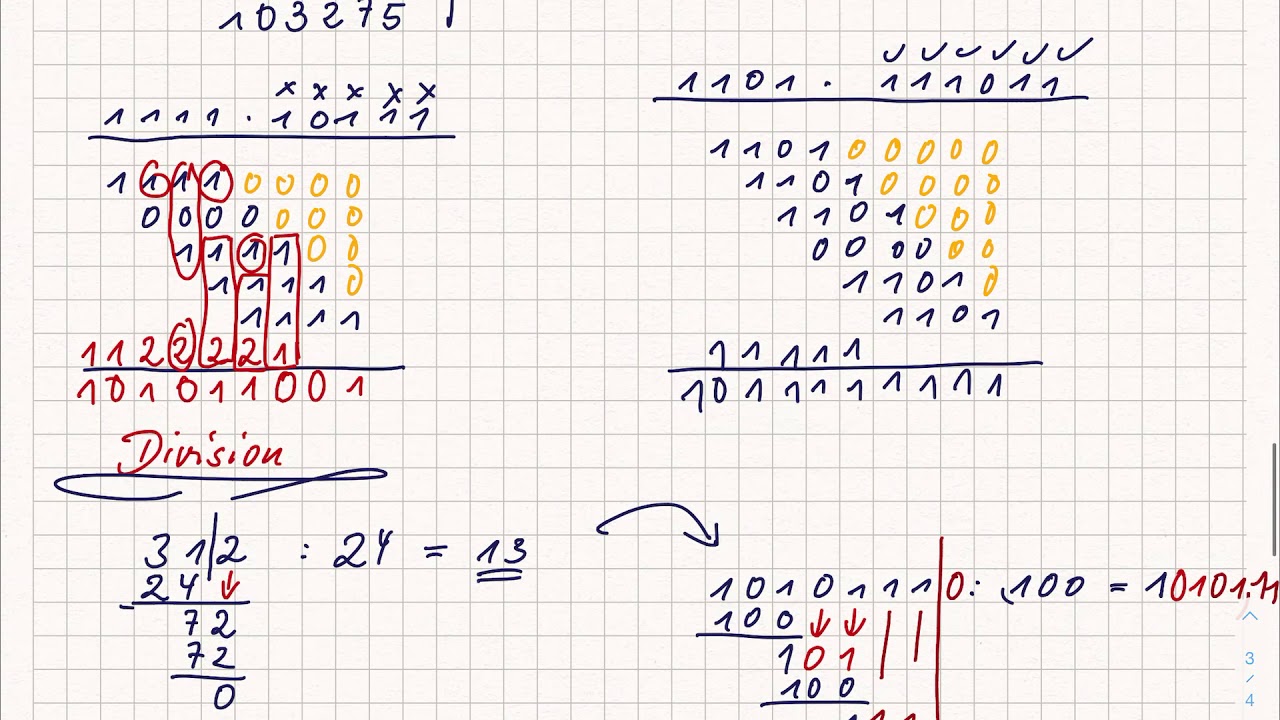 103275
x x x x x
1111 · 10111
11110000
0000000
111100
11110
1111
11222221
101011001
1101 · 111011
110100000
11010000
1101000
000000
11010
1101
11111
1011111111
Division
312 : 24 = 13
24
-
72
72
0
1010111|0 : 100 = 10101.11
100
101
100
3
/
4